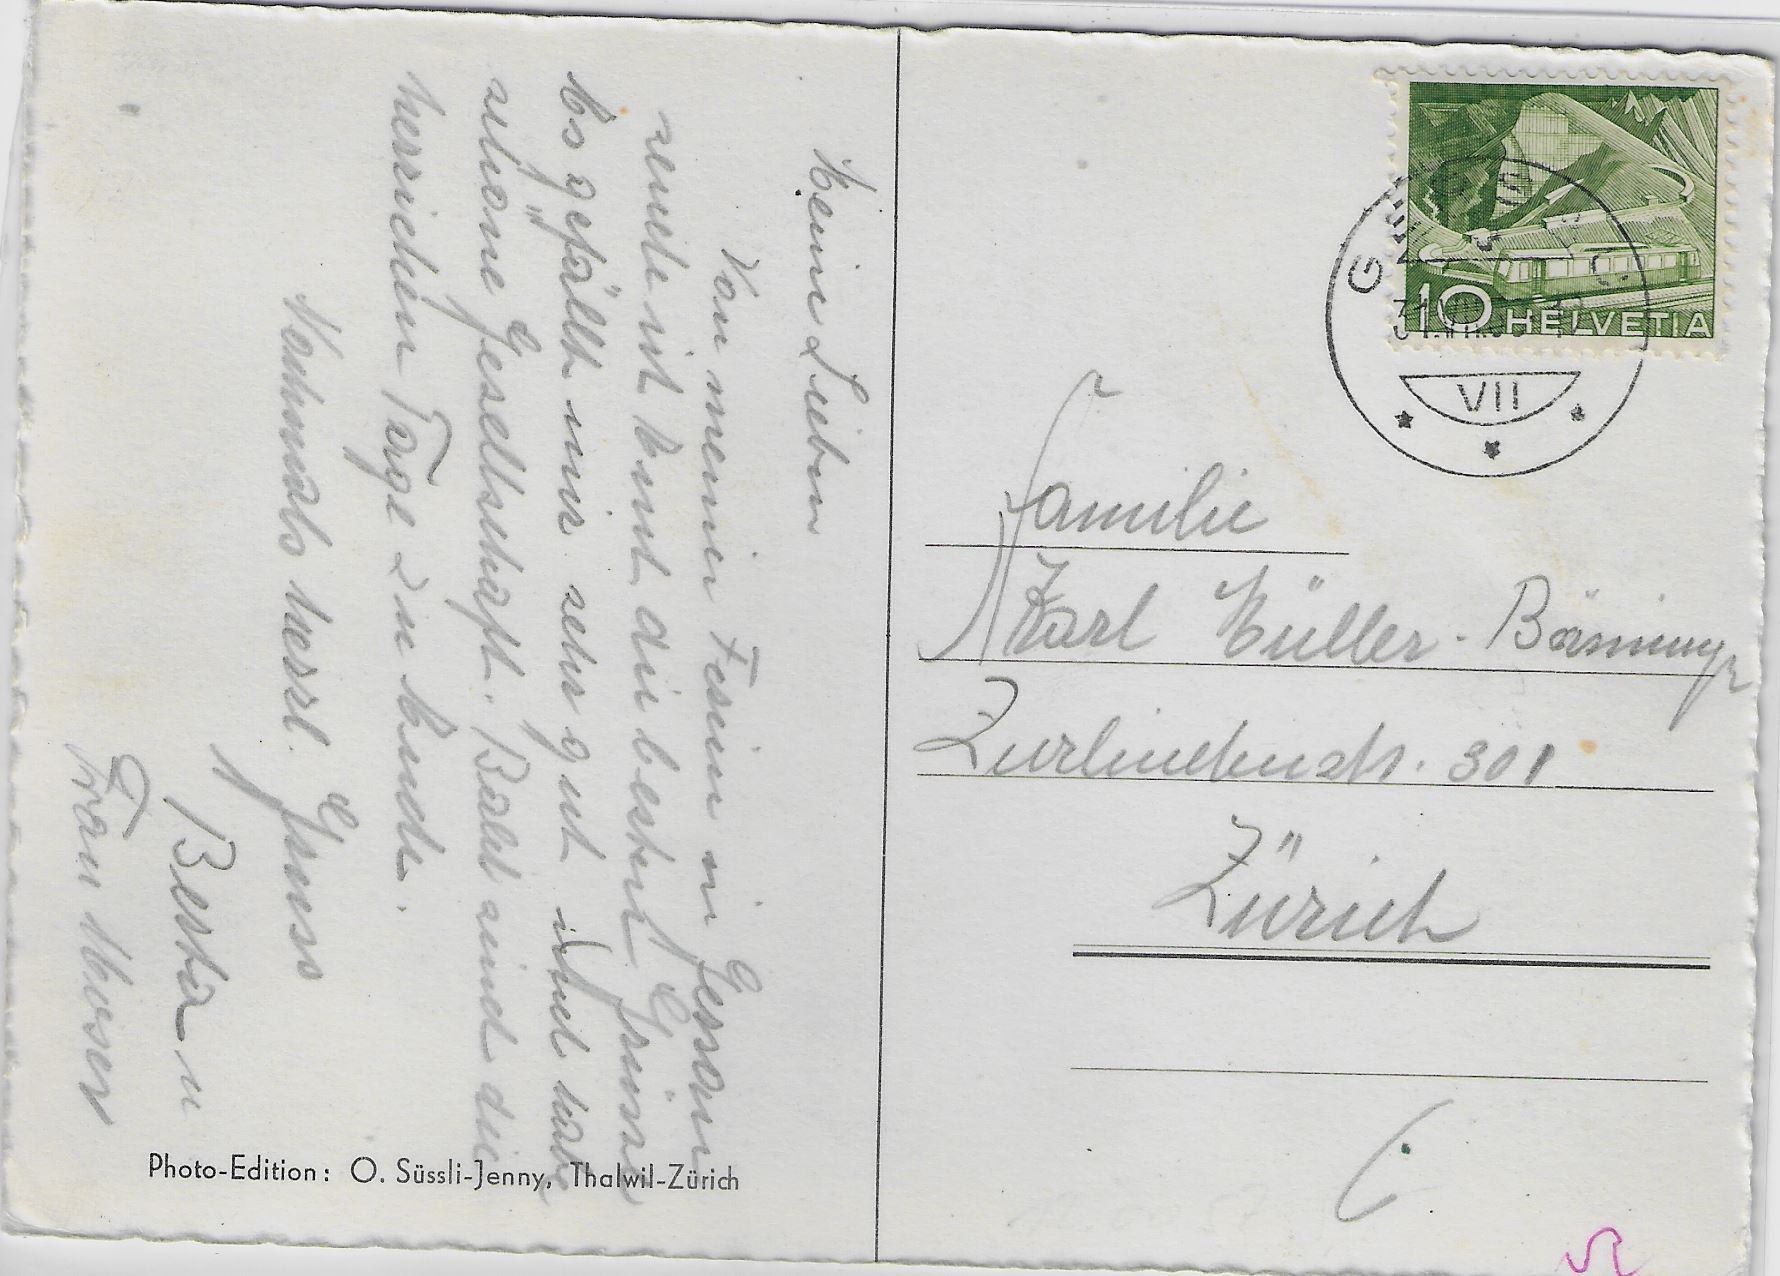 Meine Lieben
Von meinen Ferien in Gersau
sende ich Euch die besten Grüsse
Es gefällt mir sehr gut und habe
schöne Gesellschaft. Bald sind die
herrlichen Tage zu Ende.
Nochmals herzl. Gruss
Berta u
Frau Moser
Photo-Edition: O. Süssli-Jenny, Thalwil-Zürich
10 HELVETIA
VII
Familie
Karl Müller-Bänninger
Zurlindenstr. 301
Zürich